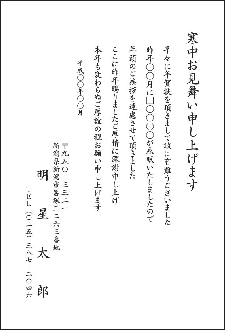 寒中お見舞い申し上げます
早々に年賀状を頂きまして誠に有難うございました
昨年〇〇月に〇〇〇〇が永眠いたしましたので
年頭のご挨拶を遠慮させて頂きました
ここに昨年賜りましたご厚情に深謝申し上げ
本年も変わらぬご厚誼の程お願い申し上げます
平成〇〇年〇〇月
明星太郎